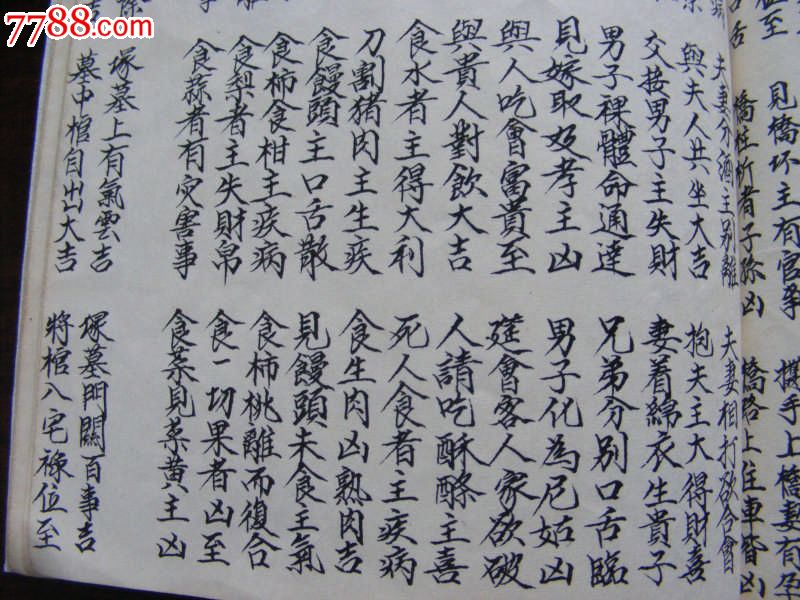 7788.com
見橋坏主有官爭
攜手上橋妻有孕
橋柱折者子孫凶
橋路上往車昏凶
夫妻分酒主別離
夫妻相打欲合會
與夫人共坐大吉
抱夫主大得財喜
交接男子主失財
妻着綿衣生貴子
男子裸體命通達
兄弟分别口舌臨
見嫁取及孝主凶
男子化為尼姑凶
與人吃會富貴至
筵會客人家欲破
與貴人對飲大吉
人請吃酥酪主喜
食水者主得大利
死人食者主疾病
刀割猪肉主生疾
食生肉凶熟肉吉
食饅頭主口舌散
見饅頭未食主氣
食柿食柑主疾病
食柿桃離而復合
食梨者主失財帛
食一切果者凶至
食蒜者有灾害事
食菜見菜黄主凶
塚墓上有氣雲吉
塚墓門開百事吉
墓中棺自出大吉
將棺入宅祿位至